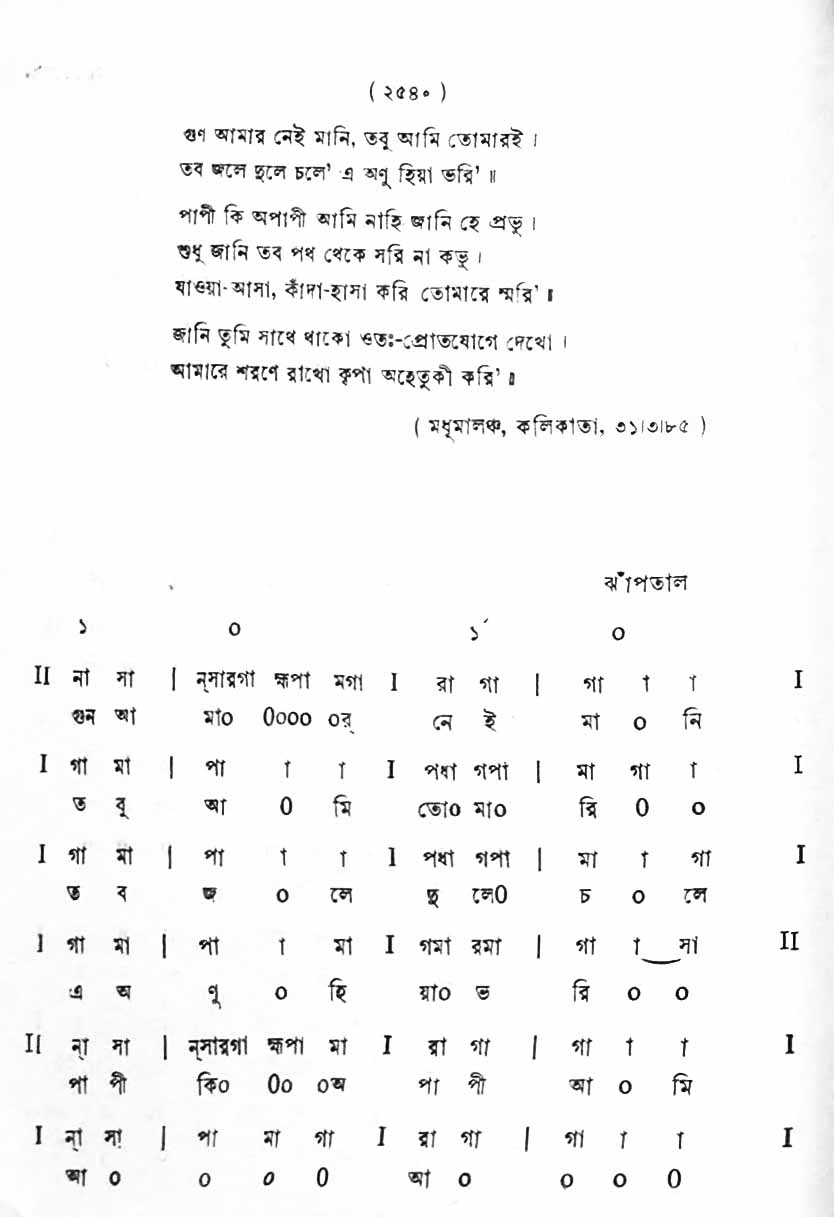 ( ২৫৪০ )
গুণ আমার নেই মানি, তবু আমি তোমারই ।
তব জলে দুলে চলে' এ অণু হিয়া ভরি' ॥
পাপী কি অপাপী আমি নাহি জানি হে প্রভু ।
শুধু জানি তব পথ থেকে সরি না কভু ।
যাওয়া-আসা, কাঁদা-হাসা করি তোমারে স্মরি' ॥
জানি তুমি সাথে থাকো ওতঃ-প্রোতযোগে দেখো ।
আমারে শরণে রাখো কৃপা অহেতুকী করি' ॥
( মধুমালঞ্চ, কলিকাতা, ৩১।৩।৮৫ )
ঝাঁপতাল
১ ০ ১´ ০
II না সা | ন্‌সারগা হ্মপা মগা I রা গা | গা া া I
গুন আ মা০ 0০০০ ০র্ নে ই মা ০ নি
I গা মা | পা া া I পধা গপা | মা গা া I
ত বু আ 0 মি তো০ মা০ রি 0 ০
I গা মা | পা া া I পধা গপা | মা া গা I
ত ব জ ০ লে দু লে0 চ ০ লে
I গা মা | পা া মা I গমা রমা | গা া সা II
এ অ ণু ০ হি য়া০ ভ রি ০ ০
II ন্‌া সা | ন্‌সারগা হ্মপা মা I রা গা | গা া া I
পা পী কি০ 0০ ০অ পা পী আ ০ মি
I ন্‌া সা | পা মা গা I রা গা | গা া া I
আ ০ ০ ০ 0 আ ০ ০ ০ 0